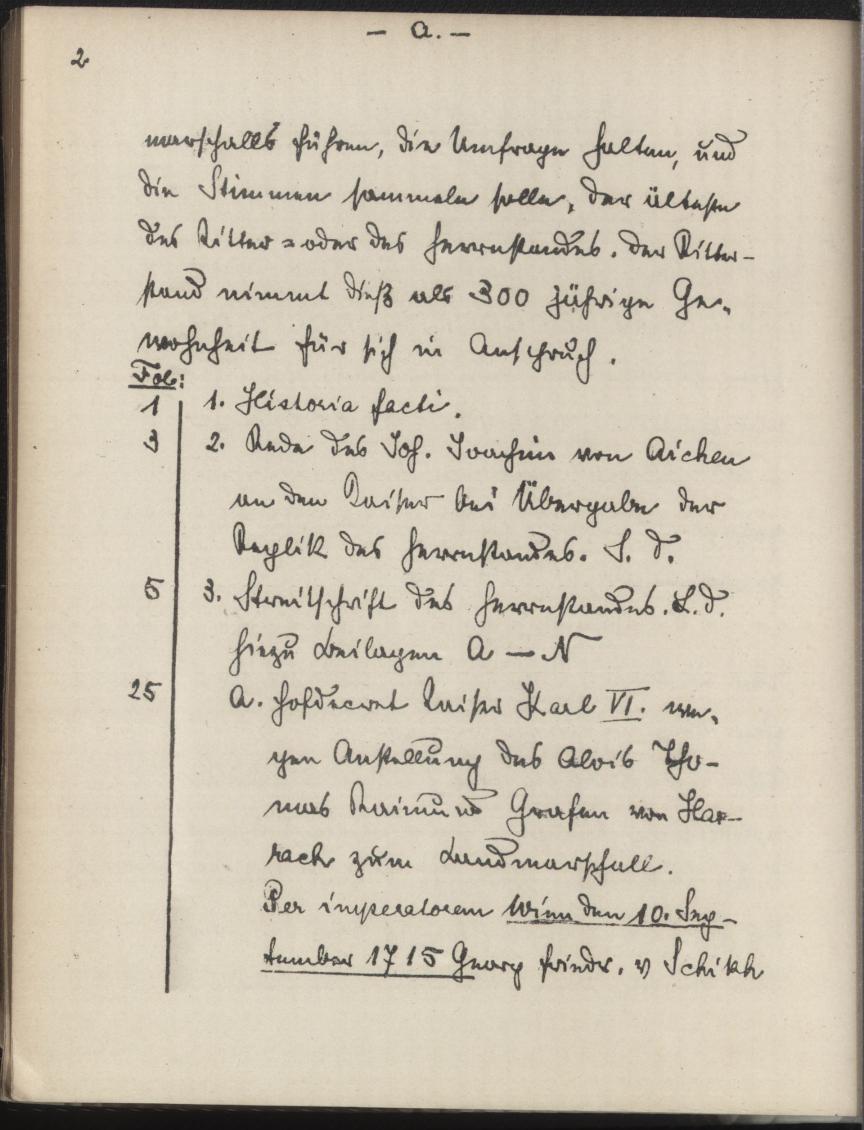 – a. –
2
marschalls führen, die Umfrage halten, und
die Stimmen sammeln solle, der älteste
des Ritter = oder des Herrnstandes. Der Ritter-
stand nimmt dieß als 300 jährige Ge-
wohnheit für sich in Anspruch.
Fol:
1 1. Historia facti.
3 2. Rede des Joh. Joachim von Aichen
an den Kaiser bei Übergabe der
Replik des Herrnstandes. S. d.
5 3. Streitschrift des Herrnstandes. S. d.
hiezu Beilagen A — N
25 A. Hofdecret Kaiser Karl VI. we-
gen Anstellung des Alois Tho-
mas Raimund Grafen von Har-
rach zum Landmarschall.
Per imperatorem Wien den 10. Sep-
tember 1715 Georg Friedr. v Schikh